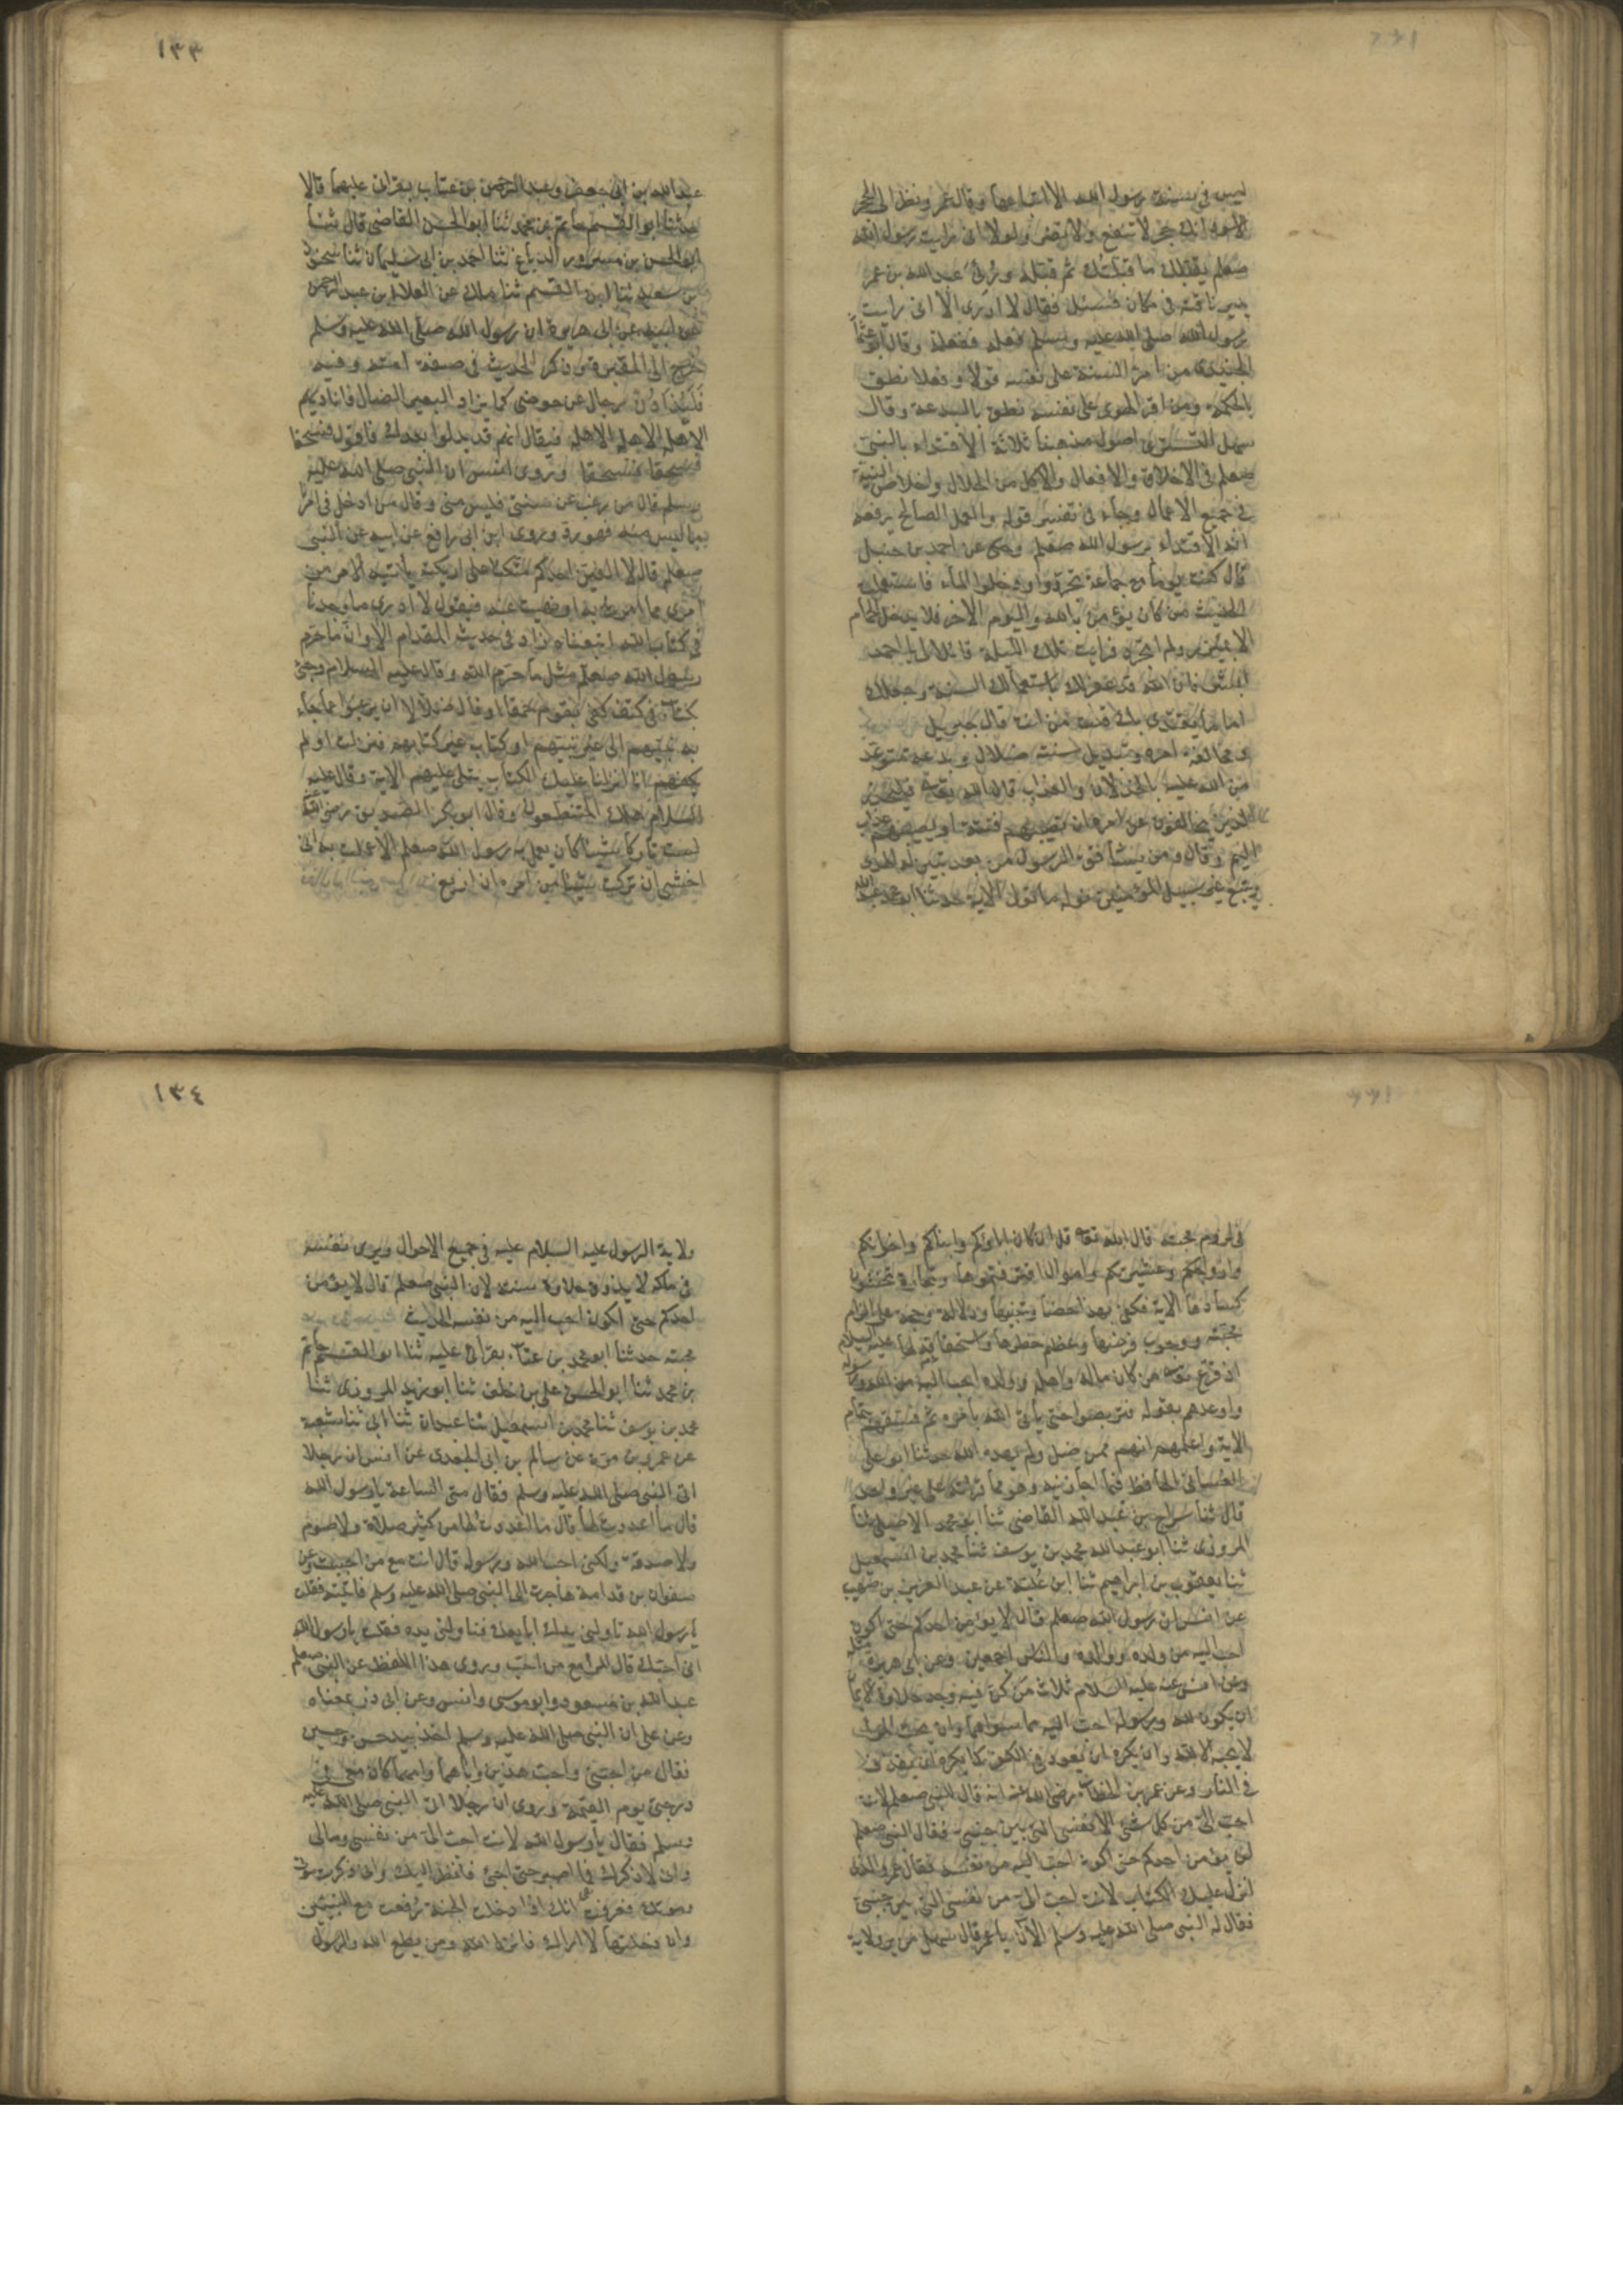 ليس في سنة رسول الله الا اتباعها وقال عمر ونظر الى الحجر
الاسود انك حجر لا تنفع ولا تضر ولولا اني رايت رسول الله
صعلم يقبلك ما قبلتك ثم قبله ورُئى عبد الله بن عمر
يدير ناقته في مكان فسئل فقال لا ادرى الا انى رايت
رسول الله صلى الله عليه وسلم فعله ففعلته وقال ابو عثمان
الحيرى من امر السنة على نفسه قولا وفعلا نطق
بالحكمة ومن امر الهوى على نفسه نطق بالبدعة وقال
سهل التسترى اصول مذهبنا ثلاثة الاقتداء بالنبى
صعلم في الاخلاق والافعال والاكل من الحلال واخلاص النية
في جميع الاعمال وجاء في تفسير قوله والعمل الصالح يرفعه
انه الاقتداء برسول الله صعلم وحكى عن احمد بن حنبل
قال كنت يوما مع جماعة تجردوا ودخلوا الماء فاستعملت
الحديث من كان يؤمن بالله واليوم الآخر فلا يدخل الحمام
الا بمئزر ولم اتجرد فرايت تلك الليلة قائلا لى يا احمد
ابشر فان الله قد غفر لك باستعمالك السنة وجعلك
اماما يقتدى بك قلت من انت قال جبريل
ومخالفة امره وتبديل سنته ضلال وبدعة متوعد
من الله عليه بالخذلان والعذاب قال الله تعالى فليحذر
الذين يخالفون عن امره ان تصيبهم فتنة او يصيبهم عذاب
اليم وقال ومن يشاقق الرسول من بعد ما تبين له الهدى
ويتبع غير سبيل المؤمنين نوله ما تولى الاية حدثنا ابو محمد عبد الله
١٣٣
عبد الله بن ابى جعفر وعبد الرحمن بن عتاب بقراتى عليهما قالا
حدثنا ابو القسم حاتم بن محمد ثنا ابو الحسن القاضى قال ثنا
ابو الحسن بن مسرور الدباغ ثنا احمد بن ابى سليمان ثنا سحنون
بن سعيد ثنا ابن القسم ثنا ملك عن العلاء بن عبد الرحمن
عن ابيه عن ابى هريرة ان رسول الله صلى الله عليه وسلم
خرج الى المقبرة وذكر الحديث في صفة امته وفيه
فليذادن رجال عن حوضى كما يزاد البعير الضال فاناديهم
الا هلم الا هلم الا هلم فيقال انهم قد بدلوا بعدك فاقول فسحقا
فسحقا فسحقا وروى انس ان النبى صلى الله عليه
وسلم قال من رغب عن سنتى فليس منى وقال من ادخل في امرنا
ما ليس منه فهو رد وروى ابن ابى رافع عن ابيه عن النبى
صعلم قال لا الفين احدكم متكئا على اريكته ياتيه الامر من
امرى مما امرت به او نهيت عنه فيقول لا ادرى ما وجدنا
في كتاب الله اتبعناه زاد في حديث المقدام الا وان ما حرم
رسول الله صعلم مثل ما حرم الله وقال عليه السلام وجئ
بكتاب في كتف كفى بقوم حمقا او قال ضلالا ان يرغبوا عما جاء
به نبيهم الى غير نبيهم او كتاب غير كتابهم فنزلت او لم
يكفهم انا انزلنا عليك الكتاب يتلى عليهم الاية وقال عليه
السلام هلك المتنطعون وقال ابو بكر الصديق رضى الله عنه
لست تاركا شيئا كان يعمل به رسول الله صعلم الا عملت به انى
اخشى ان تركت شيئا من امره ان ازيغ
في لزوم محبته قال الله تعالى قل ان كان اباؤكم وابناؤكم واخوانكم
وازواجكم وعشيرتكم واموال اقترفتموها وتجارة تخشون
كسادها الاية فكفى بهذا حضا وتنبيها ودلالة وحجة على الزام
محبته ووجوب فرضها وعظم خطرها واستحقاقه لها عليه السلام
اذ قرع تعالى من كان ماله واهله وولده احب اليه من الله ورسوله
واوعدهم بقوله فتربصوا حتى ياتى الله بامره ثم فسقهم بتمام
الاية واعلمهم انهم ممن ضل ولم يهده الله حدثنا ابو على
الغسانى الحافظ فيما اجازنيه وهو مما قراته على غير واحد
قال ثنا سراج بن عبد الله القاضى ثنا ابو محمد الاصيلى ثنا
المروزى ثنا ابو عبد الله محمد بن يوسف ثنا محمد بن اسمعيل
ثنا يعقوب بن ابراهيم ثنا ابن علية عن عبد العزيز بن صهيب
عن انس ان رسول الله صعلم قال لا يؤمن احدكم حتى اكون
احب اليه من ولده ووالده والناس اجمعين وعن ابى هريرة مثله
وعن انس عنه عليه السلام ثلاث من كن فيه وجد حلاوة الايمان
ان يكون الله ورسوله احب اليه مما سواهما وان يحب المرء
لا يحبه الا لله وان يكره ان يعود في الكفر كما يكره ان يقذف
في النار وعن عمر بن الخطاب رضى الله عنه انه قال للنبى صعلم لانت
احب الى من كل شئ الا نفسى التى بين جنبى فقال النبى صعلم
لن يؤمن احدكم حتى اكون احب اليه من نفسه فقال عمر والذى
انزل عليك الكتاب لانت احب الى من نفسى التى بين جنبى
فقال له النبى صلى الله عليه وسلم الآن يا عمر قال سهل من لم ير ولاية
١٣٤
ولاية الرسول عليه السلام عليه في جميع الاحوال ويرى نفسه
في ملكه لا يذوق حلاوة سنته لان النبى صعلم قال لا يؤمن
احدكم حتى اكون احب اليه من نفسه الحديث
محبته حدثنا ابو محمد بن عتاب بقراتى عليه ثنا ابو القسم حاتم
بن محمد ثنا ابو الحسن على بن خلف ثنا ابو زيد المروزى ثنا
محمد بن يوسف ثنا محمد بن اسمعيل ثنا عبدان ثنا ابى ثنا شعبة
عن عمرو بن مرة عن سالم بن ابى الجعدى عن انس ان رجلا
اتى النبى صلى الله عليه وسلم فقال متى الساعة يا رسول الله
قال ما اعددت لها قال ما اعددت لها من كثير صلاة ولا صوم
ولا صدقة ولكنى احب الله ورسوله قال انت مع من احببت وعن
صفوان بن قدامة هاجرت الى النبى صلى الله عليه وسلم فاتيته فقلت
يا رسول الله ناولنى يدك ابايعك فناولنى يده فقلت يا رسول الله
انى احبك قال المرء مع من احب وروى هذا اللفظ عن النبى صعلم
عبد الله بن مسعود وابو موسى وانس وعن ابى ذر بمعناه
وعن على ان النبى صلى الله عليه وسلم اخذ بيد حسن وحسين
فقال من احبنى واحب هذين واباهما وامهما كان معى في
درجتى يوم القيمة وروى ان رجلا اتى النبى صلى الله عليه
وسلم فقال يا رسول الله لانت احب الى من نفسى ومالى
وانى لاذكرك فما اصبر حتى اجئ فانظر اليك وانى ذكرت موتى
وموتك فعرفت انك اذا دخلت الجنة رفعت مع النبيين
وان دخلتها لا اراك فانزل الله ومن يطع الله والرسول